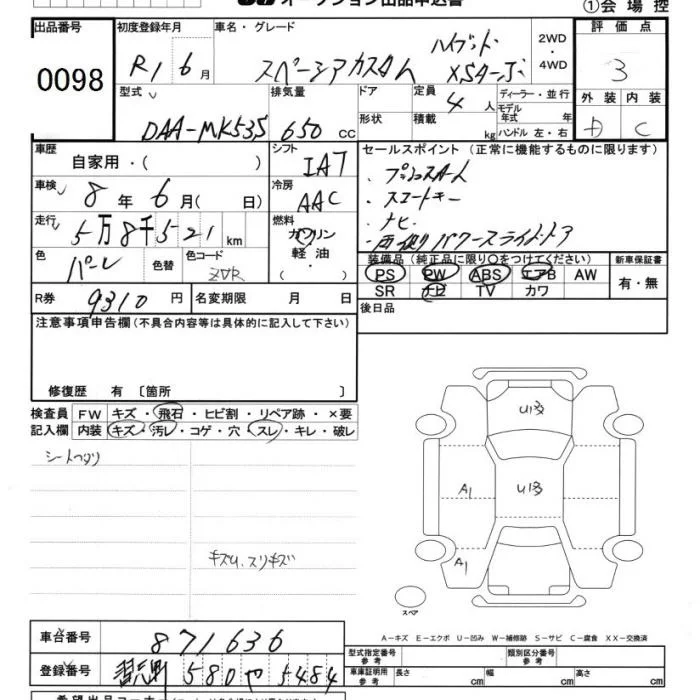 オークション出品申込書
①会場控
出品番号 初度登録年月 車名・グレード 2WD・4WD 評価点
0098 R1 6月 スペーシアカスタム ハイブリッド XSターボ 3
型式 排気量 ドア 定員 ディーラー・並行 外装 内装
DAA-MK53S 650 cc 4人 モデル年式 年 D C
形状 積載 kg ハンドル 左・右
車歴 自家用・( ) シフト IAT セールスポイント (正常に機能するものに限ります)
車検 8年 6月( 日) 冷房 AAC ・プッシュスタート
・スマートキー
走行 5万8千521km 燃料 ・ナビ
ガソリン ・両側パワースライドドア
軽油・( )
色 パール 色替 色コード ZVR
装備品(純正品に限り○をつけてください) 新車保証書
PS PW ABS エアB AW 有・無
SR ナビ TV カワ
R券 9310円 名変期限 月 日
後日品
注意事項申告欄(不具合内容等は具体的に記入して下さい)
修復歴 有 [箇所 ]
検査員 FW キズ・飛石・ヒビ割・リペア跡・×要
記入欄 内装 キズ・汚レ・コゲ・穴・スレ・キレ・破レ
シートヘタリ
U13
A1 U13
キズU、スリキズ
A1
スペア
A-キズ E-エクボ U-凹み W-補修跡 S-サビ C-腐食 XX-交換済
車台番号 871636
型式指定番号 参考 類別区分番号 参考
登録番号 習志野 580 や 5484
車庫証明用 参考 長さ cm 幅 cm 高さ cm
希望出品コーナー